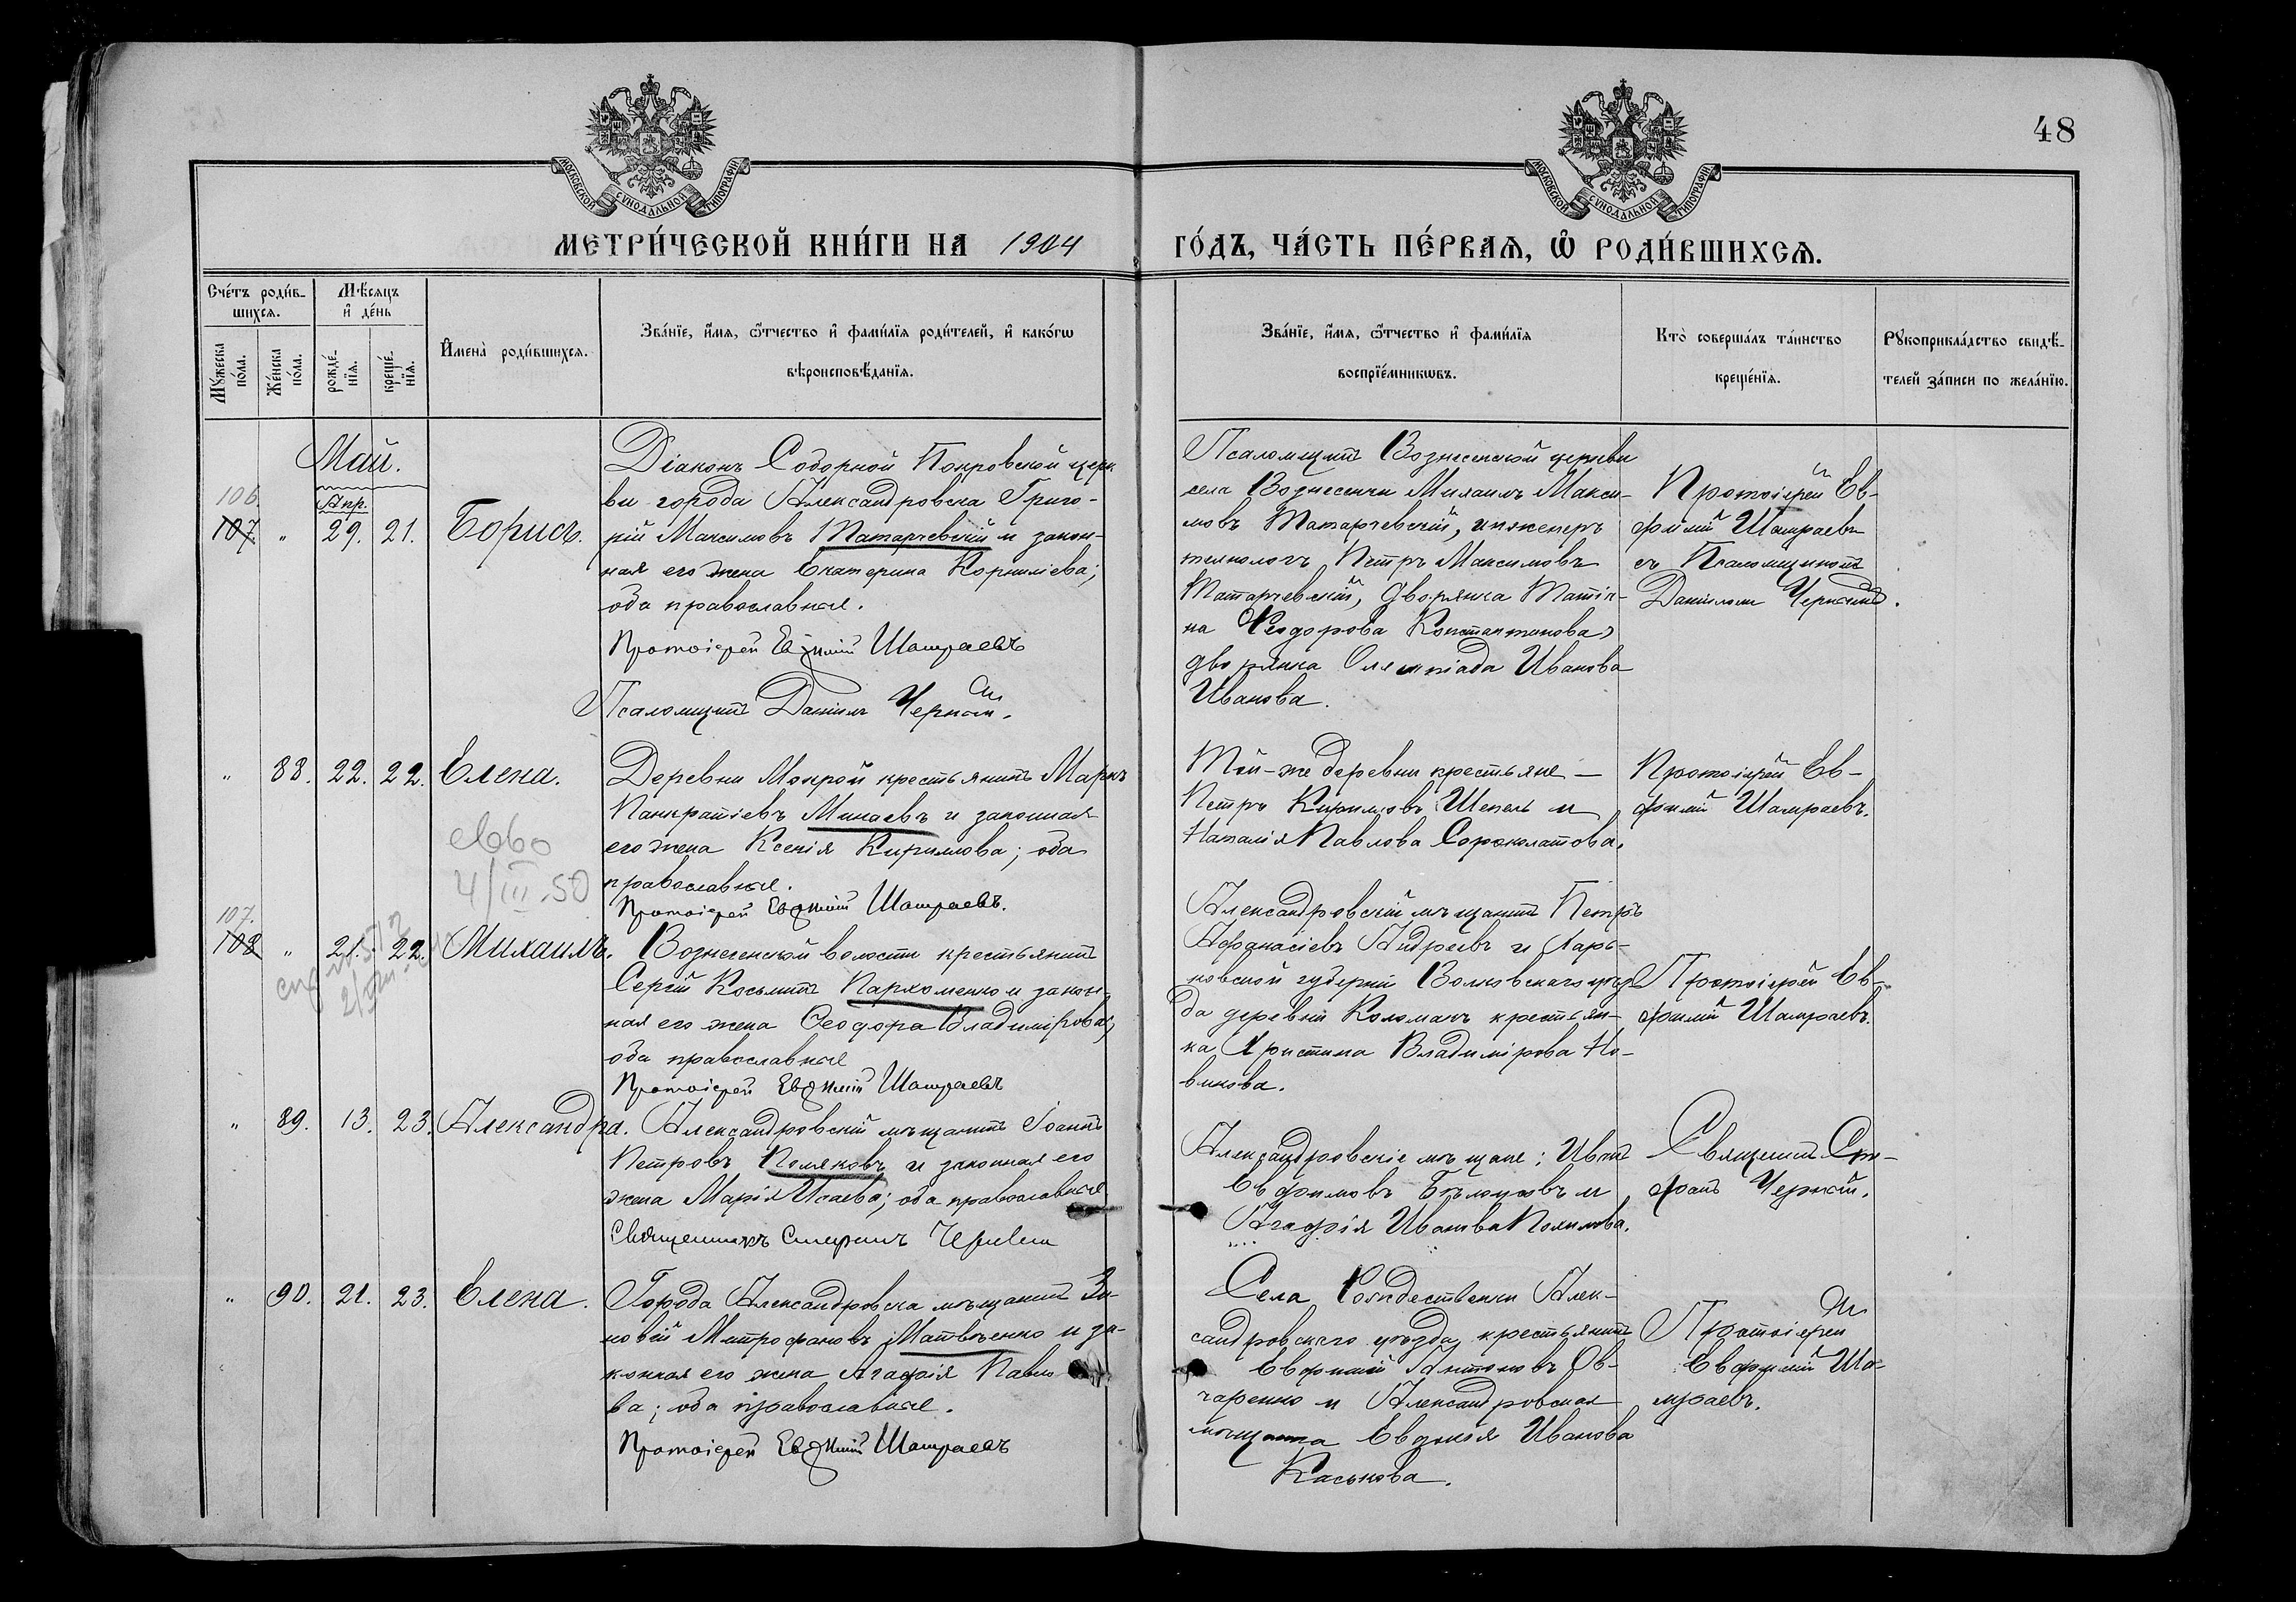 48
МОСКОВСКОЙ СѴНОДАЛЬНОЙ ТИПОГРАФІИ
МОСКОВСКОЙ СѴНОДАЛЬНОЙ ТИПОГРАФІИ
МЕТРИ́ЧЕСКОЙ КНИ́ГИ НА 1904 ГО́ДЪ, ЧА́СТЬ ПЕ́РВАѦ, Ѡ҆ РОДИ́ВШИХСѦ.
Сче́тъ роди́в-
шихсѧ.
Мꙋ́жеска по́ла.
Же́нска по́ла.
Мѣ́сѧцъ
и҆ де́нь
рожде́-
нїѧ.
креще́-
нїѧ.
И҆мена̀ роди́вшихсѧ.
Зва́нїе, и҆́мѧ, ѻ҆́тчество и҆ фами́лїѧ роди́телей, и҆ како́гѡ
вѣроисповѣ́данїѧ.
Зва́нїе, и҆́мѧ, ѻ҆́тчество и҆ фами́лїѧ
воспрїе́мникѡвъ.
Кто̀ соверша́лъ та́инство
креще́нїѧ.
Рꙋкоприкла́дство свидѣ́-
телей за́писи по жела́нїю.
Май.
106.
107. " Апр. 29. 21. Борисъ.
Діаконъ Соборной Покровской церк
ви города Александровска Григо-
рій Максимовъ Татарчевскій и закон-
ная его жена Екатерина Корниліева;
оба православные.
Протоіерей Евѳимій Шамраевъ
Псаломщикъ Даніилъ Чернай.
Псаломщикъ Вознесенской церкви
села Вознесенки Михаилъ Макси-
мовъ Татарчевскій, инженеръ
технологъ Петръ Максимовъ
Татарчевскій, дворянка Татія-
на Ѳеодорова Константинова,
дворянка Олимпіада Иванова
Иванова.
Протоіерей Ев-
фимій Шамраевъ
съ Псаломщикомъ
Даніиломъ
" 88. 22. 22. Елена.
Деревни Мокрой крестьянинъ Маркъ
Панкратіевъ Минаевъ и законная
его жена Ксенія Кириллова; оба
православные.
Протоіерей Евѳимій Шамраевъ.
Той-же деревни крестьяне —
Петръ Кирилловъ Шепель и
Наталія Павлова Сороколатова.
Протоіерей Ев-
фимій Шамраевъ.
4/III.50
107.
108 " 21. 22. Михаилъ.
Вознесенской волости крестьянинъ
Сергій Косьминъ Пархоменко и закон-
ная его жена Ѳеодора Владимірова;
оба православные
Протоіерей Евѳимій Шамраевъ
Александровскій мѣщанинъ Петръ
Афанасіевъ Андреевъ и Харь-
ковской губерніи Волковскаго уѣз-
да деревни Коломакъ крестьян-
ка Христина Владимірова Но-
викова.
Протоіерей Ев-
фимій Шамраевъ.
" 89. 13. 23. Александра.
Александровскій мѣщанинъ Іоаннъ
Петровъ Поляковъ и законная его
жена Марія Исаева; оба православные
Священникъ
Александровскіе мѣщане: Иванъ
Евфимовъ Бѣлоусовъ и
Агафія Иванова Полякова.
Священникъ Сте-
фанъ Чернай.
" 90. 21. 23. Елена.
Города Александровска мѣщанинъ Зи-
новій Митрофановъ Матвѣенко и за-
конная его жена Агафія Павло-
ва; оба православные.
Протоіерей Евѳимій Шамраевъ
Села Рождественки Алек-
сандровскаго уѣзда крестьянинъ
Евфимій Антоновъ Ов-
чаренко и Александровская
мѣщанка Евдокія Иванова
Каськова.
Протоіерей
Евфимій Ша-
мраевъ.